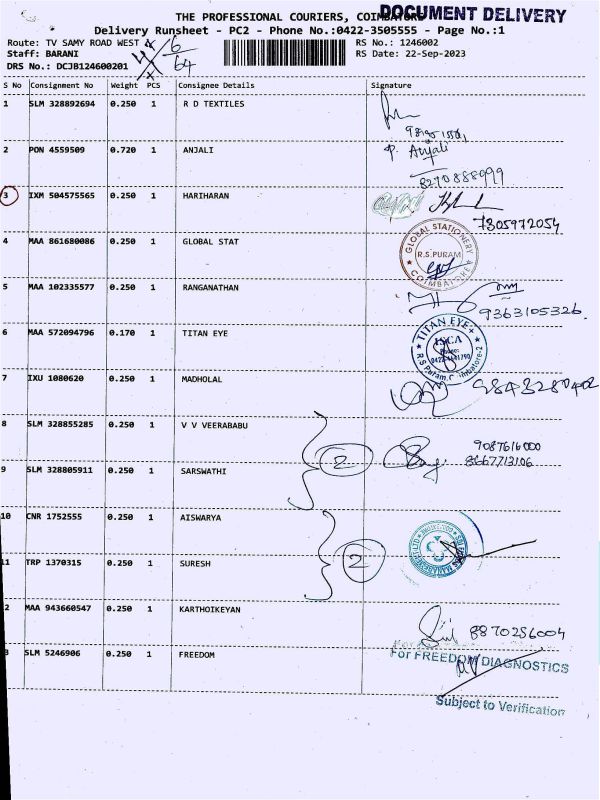 THE PROFESSIONAL COURIERS, COIMBATORE
DOCUMENT DELIVERY
Delivery Runsheet - PC2 - Phone No.:0422-3505555 - Page No.:1
Route: TV SAMY ROAD WEST
RS No.: 1246002
Staff: BARANI
RS Date: 22-Sep-2023
DRS No.: DCJB124600201
6
64
S No Consignment No Weight PCS Consignee Details Signature
1 SLM 328892694 0.250 1 R D TEXTILES
2 PON 4559509 0.720 1 ANJALI
P. Anjali
8270888099
3 IXM 504575565 0.250 1 HARIHARAN
7305972054
4 MAA 861680086 0.250 1 GLOBAL STAT
GLOBAL STATIONERY
R.S.PURAM
COIMBATORE
5 MAA 102335577 0.250 1 RANGANATHAN
9363105326
6 MAA 572094796 0.170 1 TITAN EYE
TITAN EYE+
7 IXU 1080620 0.250 1 MADHOLAL
9843280402
8 SLM 328855285 0.250 1 V V VEERABABU
2
9087616000
8667713106
9 SLM 328805911 0.250 1 SARSWATHI
10 CNR 1752555 0.250 1 AISWARYA
11 TRP 1370315 0.250 1 SURESH
2
2 MAA 943660547 0.250 1 KARTHOIKEYAN
8870256004
3 SLM 5246906 0.250 1 FREEDOM
For FREEDOM DIAGNOSTICS
Subject to Verification